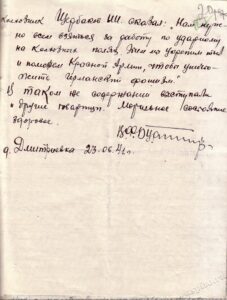 Колхозник Щербаков И.И. сказал: Нам нужно
всем взяться за работу по ударному
на колхозных полях, этим мы укрепим тыл
и поможем Красной Армии, чтобы уничто-
жить германский фашизм."
В таком же содержании выступали
и другие товарищи. Моральное состояние
здоровое.
д. Дмитриевка 23.06.41г.